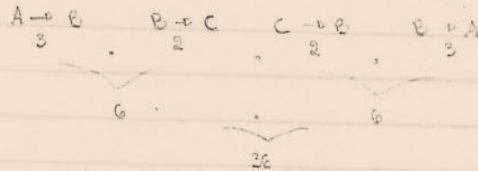 A → B B → C C → B B → A
3 . 2 . 2 . 3
6 . 6
36